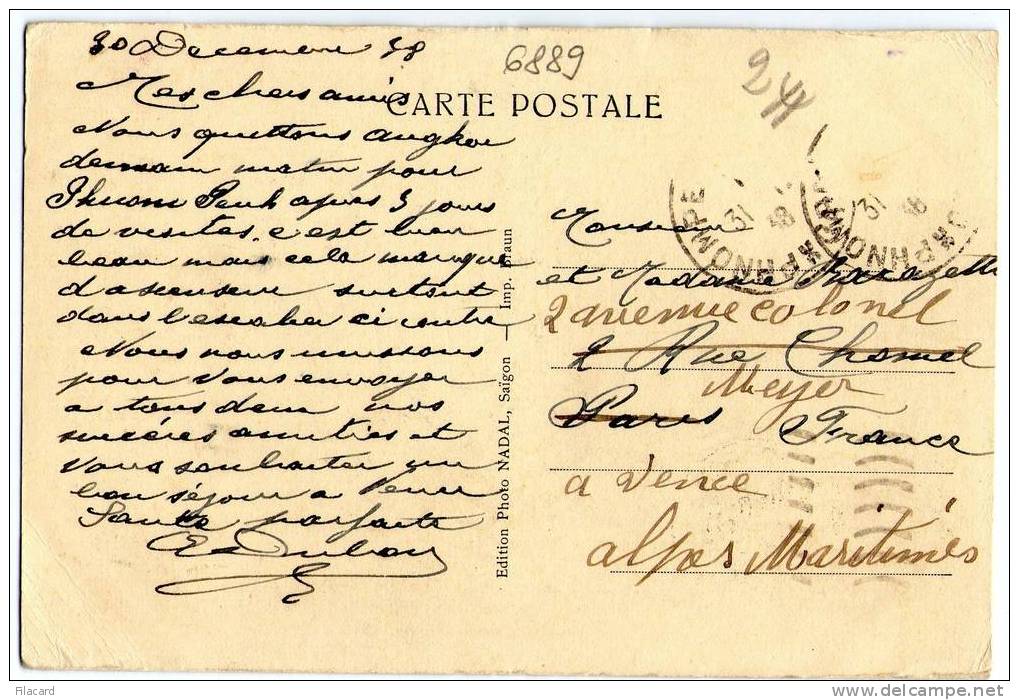 30 Decembre 38
6889
24
Mes chers amis
CARTE POSTALE
Nous quittons Angkor
demain matin pour
Phnom Penh après 3 jours
de visites. c'est bien
beau mais cela manque
d'ascenseur surtout
dans l'escalier ci contre
Nous nous unissons
pour vous envoyer
a tous deux nos
sincères amitiés et
vous souhaiter un
bon séjour a Vence
Santé parfaite
Edition Photo NADAL, Saïgon — Imp. Braun
PHNOMPENH
31
18
PHNOM
31
18
Monsieur
et Madame
2 avenue colonel
2 Rue Chomel
Meyer
Paris France
a Vence
alpes Maritimes
Filacard
www.delcampe.net